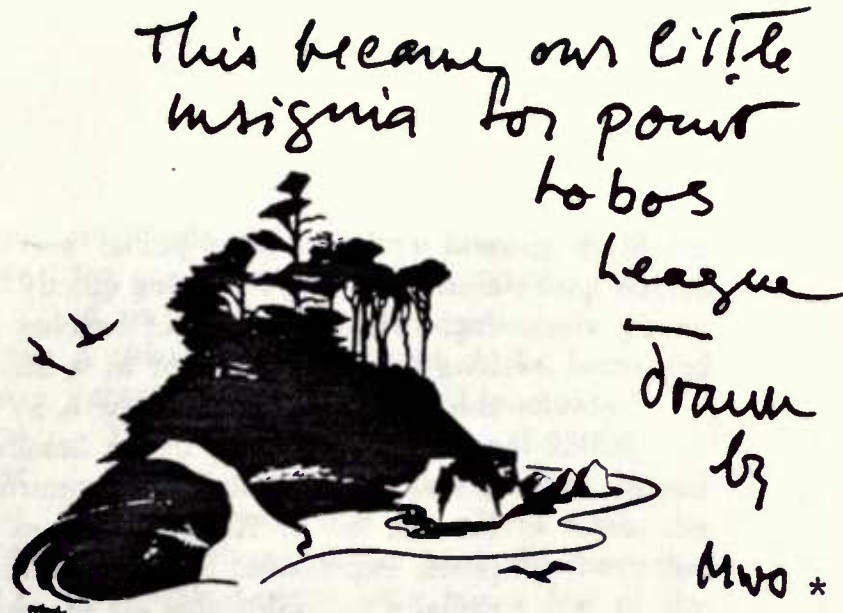 This became our little
insignia for point
Lobos
League
drawn
by
MWO *